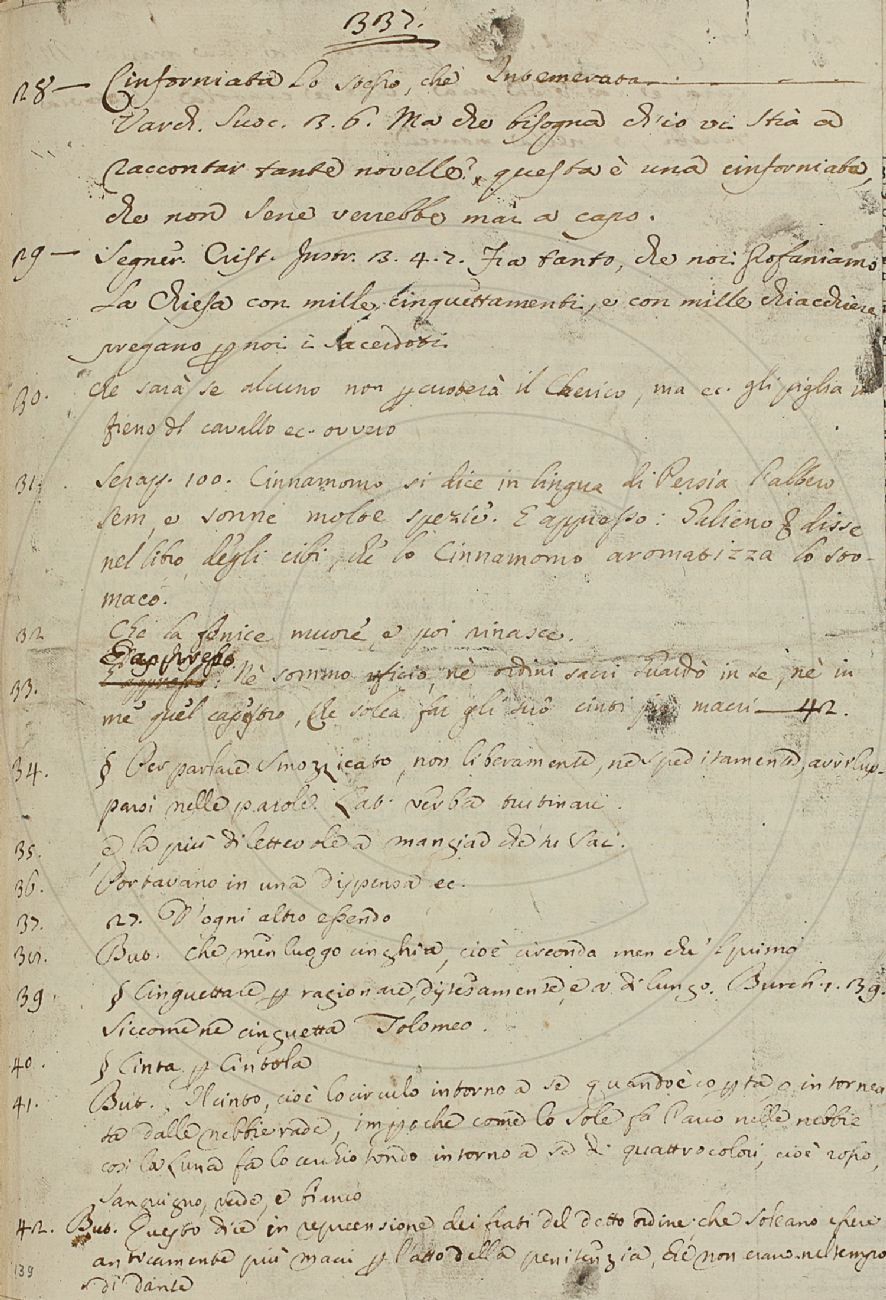 337.
28 — Cinforniata Lo stesso, che Intemerata
Varch. Suoc. 3. 6. Ma che bisogna ch'io vi stia a
raccontar tante novelle? questa è una cinforniata,
che non sene verrebbe mai a capo.
29 — Segner. Crist. Instr. 3. 4. 7. Fra tanto, che noi profaniamo
la Chiesa con mille cinguettamenti, e con mille chiacchiere
pregano p noi i sacerdoti.
30. che sarà se alcuno non pcuoterà il Cherico, ma ec. gli piglia il
freno dl cavallo ec. ovvero
31. Serap. 100. Cinnamomo si dice in lingua di Persia l'albero
sem, e sonne molte spezie. E appresso: Galieno disse
nel libro degli cibi, che lo Cinnamomo aromatizza lo sto-
maco.
32 Che la fenice muore, e poi rinasce.
E appresso
33. E appresso: Nè sommo uficio, nè ordini sacri Guardò in se, nè in
me quel capestro, Che solea far gli suoi cinti più macri — 42.
34. § Per parlare smozzicato, non liberamente, ne speditamente, avvilup-
parsi nelle parole. Lat. verba trutinari.
35. e la più dilettevole a mangiar che tu sai.
36. Portavano in una dispensa ec.
37. 27. D'ogni altro essendo
38. But. che men luogo cinghia, cioè circonda men che 'l primo
39. § Cinguettare p ragionare, distesamente, e a di lungo. Burch. 1. 39.
Siccome ne cinguetta Tolomeo.
40. § Cinta p Cintola
41. But. Il cinto, cioè lo circulo intorno a se quando è copta, o intornea
ta dalle nebbie rade, impoche come lo Sole fa l'arco nelle nebbie
così la Luna fa lo cerchio tondo intorno a se di quattro colori, cioè rosso,
sanguigno, verde, e bianco
42. But. Questo dice in reprensione dei frati del detto ordine che soleano essere
anticamente più macri p l'atto della penitenzia, che non erano nel tempo
di dante
139